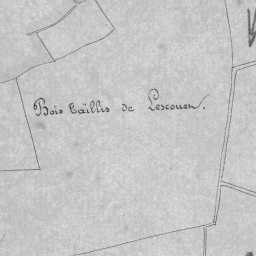 Bois taillis de Lescouen.